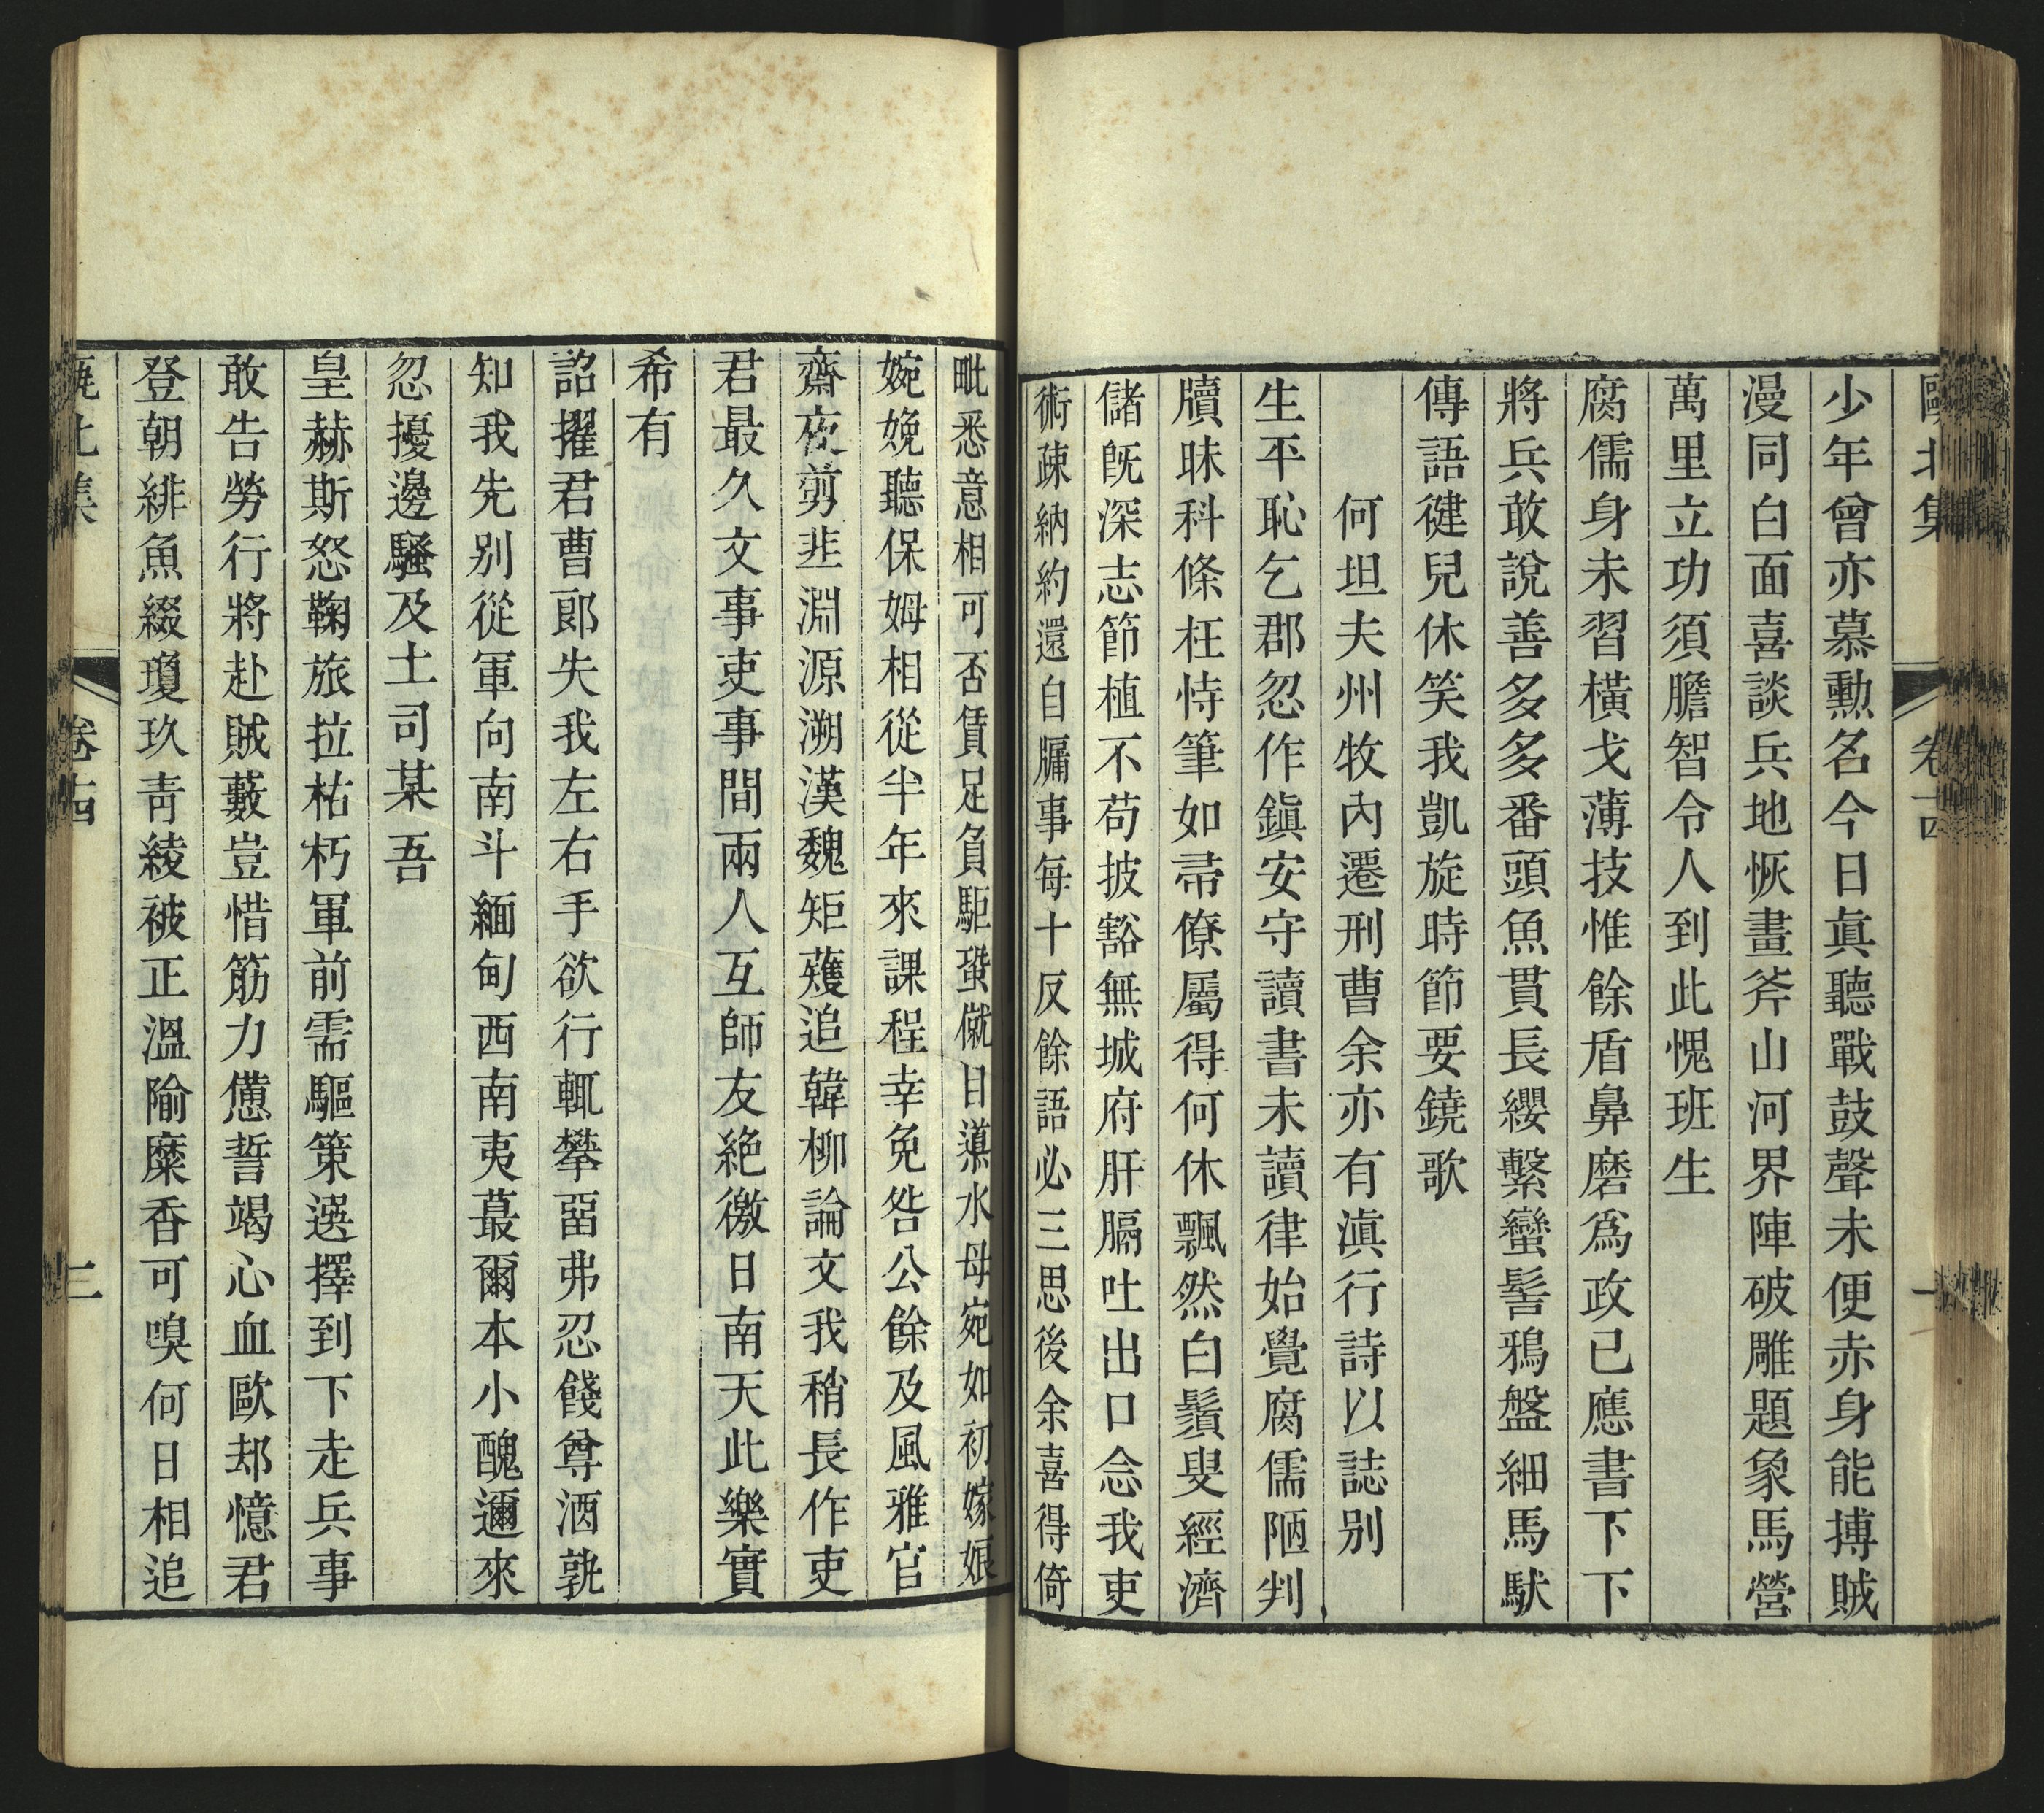 甌北集 卷十四 一
少年曾亦慕勳名今日眞聽戰鼓聲未便赤身能搏賊
漫同白面喜談兵地恢畫斧山河界陣破雕題象馬營
萬里立功須膽智令人到此愧班生
腐儒身未習橫戈薄技惟餘盾鼻磨爲政已應書下下
將兵敢說善多多番頭魚貫長纓繫蠻髻鴉盤細馬馱
傳語健兒休笑我凱旋時節要鐃歌
何坦夫州牧內遷刑曹余亦有滇行詩以誌別
生平恥乞郡忽作鎮安守讀書未讀律始覺腐儒陋判
牘昧科條枉恃筆如帚僚屬得何休飄然白鬚叟經濟
儲旣深志節植不苟披豁無城府肝膈吐出口念我吏
術疎納約還自牖事每十反餘語必三思後余喜得倚
毗悉意相可否賃足負駏蛩僦目藉水母宛如初嫁娘
婉娩聽保姆相從半年來課程幸免咎公餘及風雅官
齋夜剪韭淵源溯漢魏矩矱追韓柳論文我稍長作吏
君最久文事吏事間兩人互師友絶徼日南天此樂實
希有
詔擢君曹郎失我左右手欲行輒攀留弗忍餞尊酒孰
知我先別從軍向南斗緬甸西南夷蕞爾本小醜邇來
忽擾邊騷及土司某吾
皇赫斯怒鞠旅拉枯朽軍前需驅策選擇到下走兵事
敢告勞行將赴賊藪豈惜筋力憊誓竭心血歐却憶君
登朝緋魚綴瓊玖靑綾被正溫隃糜香可嗅何日相追
甌北集 卷十四 二